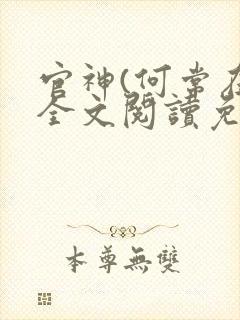 官神(何常在
全文閱讀免
本尊無雙